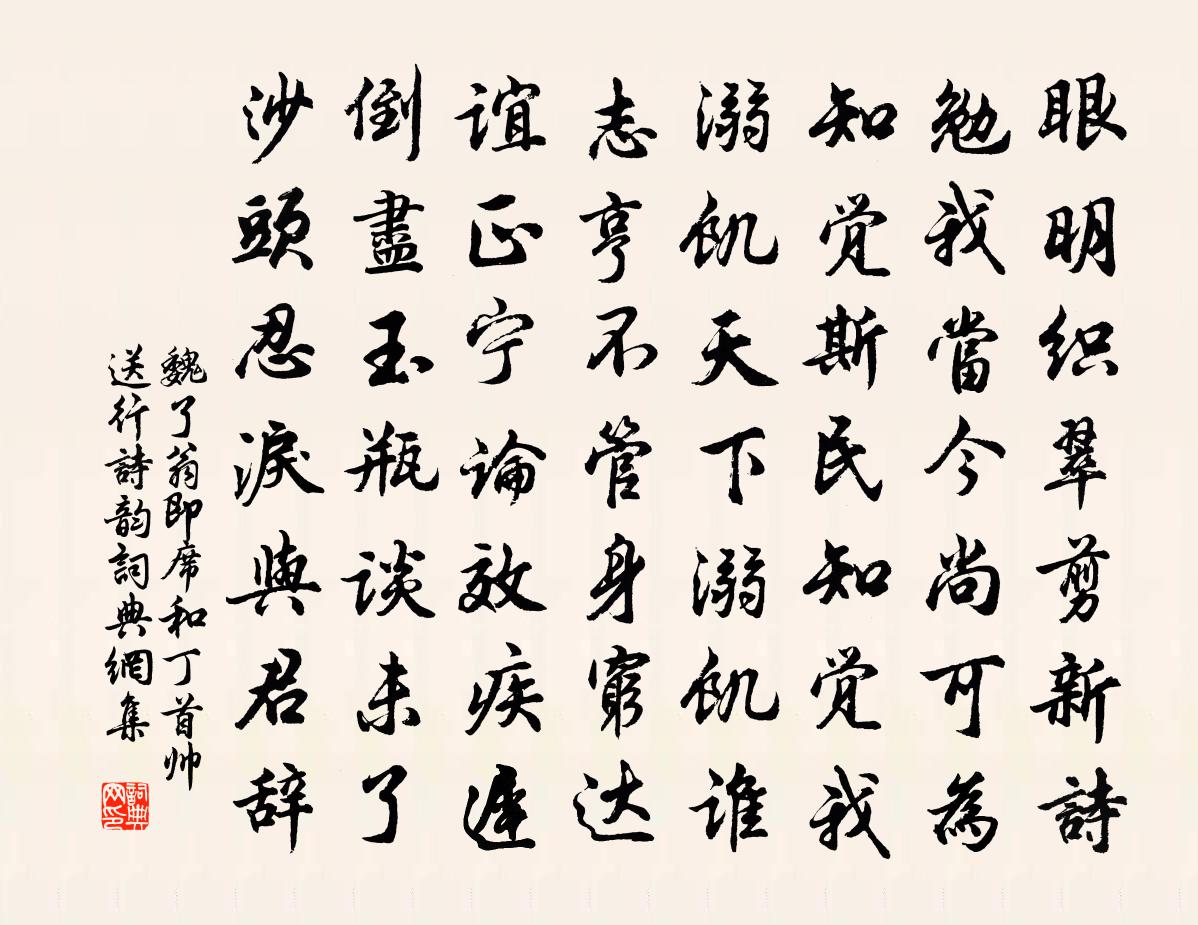 眼明织翠剪新詩
勉我當今尚可為
知觉斯民知觉我
溺飢天下溺飢谁
志亨不管身窮达
谊正宁論效疾遲
倒盡玉瓶谈未了
沙頭忍淚與君辞
魏了翁即席和丁首帅
送行詩韵詞典網集
詞典
网印